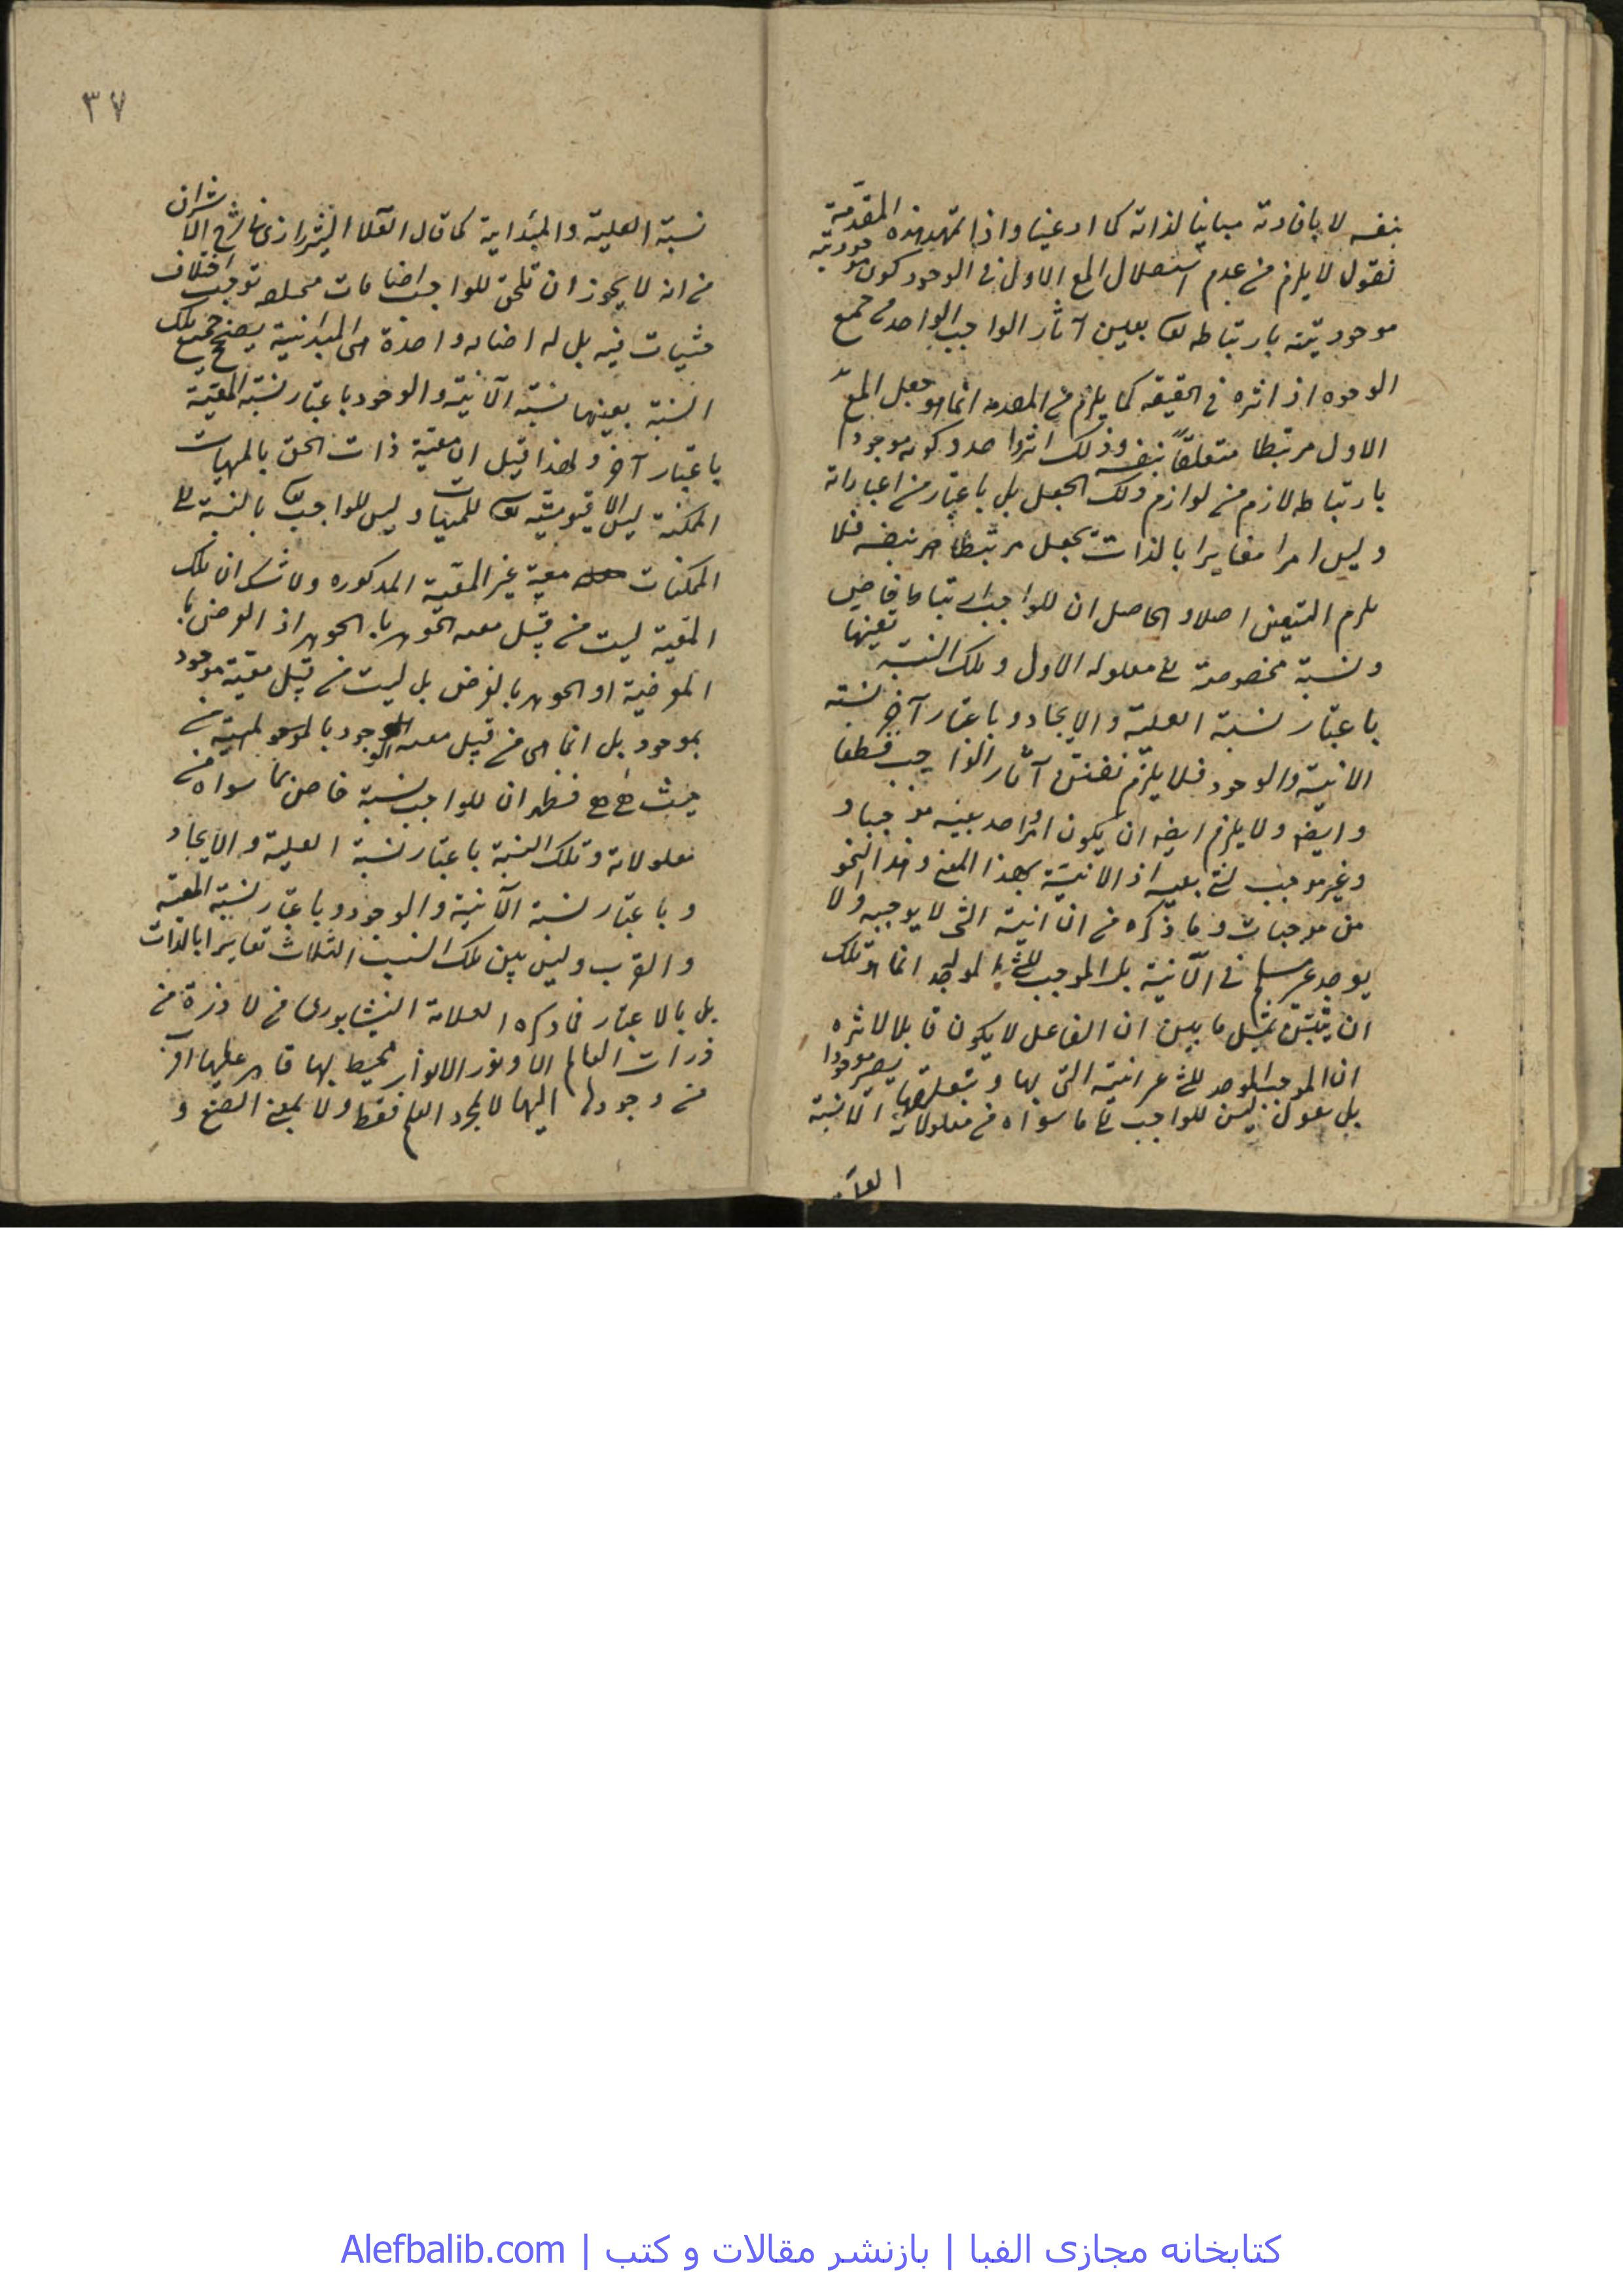 بنفسه لا بافادته مباينا لذاته كما ادعينا واذا تمهد هذه المقدمة
نقول لا يلزم من عدم استقلال المع الاول فى الوجود كون موجوديته
موجوديته بارتباطه تعا بعين آثار الواجب الواحد من جميع
الوجوه اذ اثره فى الحقيقه كما يلزم من المقدمه انما هو جعل المع
الاول مرتبطا متعلقا بنفسه وذلك اثر واحد وكونه موجودا
بارتباطه لازم من لوازم ذلك الجعل بل باعتبار من اعتباراته
وليس امرا مغايرا بالذات بجعل مرتبطا هو بنفسه فلا
يلزم اصلا والحاصل ان للواجب ارتباطا خاص
ونسبة مخصوصة الى معلوله الاول وتلك النسبة بعينها
باعتبار نسبة العلية والايجاد وباعتبار آخر نسبة
الانية والوجود فلا يلزم آثار الواجب قطعا
وايضه ولا يلزم ايضه ان يكون امر واحد بعينه موجبا و
وغير موجب لشئ بعينه اذ الانية بهذا المعنى وهذا النحو
من موجبات وما ذكره من ان انية الشئ لا يوجبه ولا
يوجد غير مسلم فى الآنية بل الموجب للشئ الموجد انما هو تلك
ان يثبتن بمثل ما بين ان الفاعل لا يكون قابلا لاثره
ان الموجب الموجد للشئ غير انيته التى بها وبتعلقها يصير موجودا
بل نقول ليس للواجب الى ما سواه من معلولاته الانية
العلية
٣٧
نسبة العلية والمبدائية كما قال العلا الشيرازى فى شرح الاشراق
من انه لا يجوز ان تلحق للواجب اضافات مختلفه توجب اختلاف
حثيات فيه بل له اضافه واحدة هى المبدائية يصح جميع تلك
النسبة بعينها نسبة الآنية والوجود باعتبار نسبة المعية
باعتبار آخر ولهذا قيل ان معية ذات الحق بالمهيات
الممكنة ليس الا قيوميته تعا للمهيات وليس للواجب تعا بالنسبة الى
الممكنات معية غير المعية المذكوره ولا شك ان تلك
المعية ليست من قبيل معية الجوهر بالجوهر اذ العرض با
العرضية او الجوهر بالعرض بل ليست من قبيل معية موجود
بموجود بل انما هى من قبيل معية الوجود بالمهية من
حيث هى هى فظهر ان للواجب نسبة خاص بما سواه من
معلولاته وتلك النسبة باعتبار نسبة العلية والايجاد
وباعتبار نسبة الآنية والوجود وباعتبار نسبة المعية
والقرب وليس بين تلك النسب الثلاث تغايرا بالذات
بل بالاعتبار فما ذكره العلامة النيشابورى من لا ذرة من
ذرات العالم الا ونور الانوار محيط بها قاهر عليها اقرب
من وجودها اليها لا بمجرد العلم فقط ولا بمعنى الصنع و
کتابخانه مجازی الفبا | بازنشر مقالات و کتب | Alefbalib.com